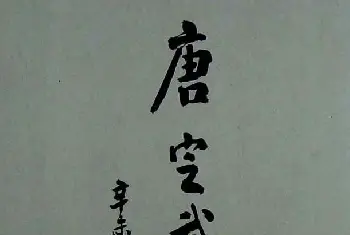 唐空武
辛未